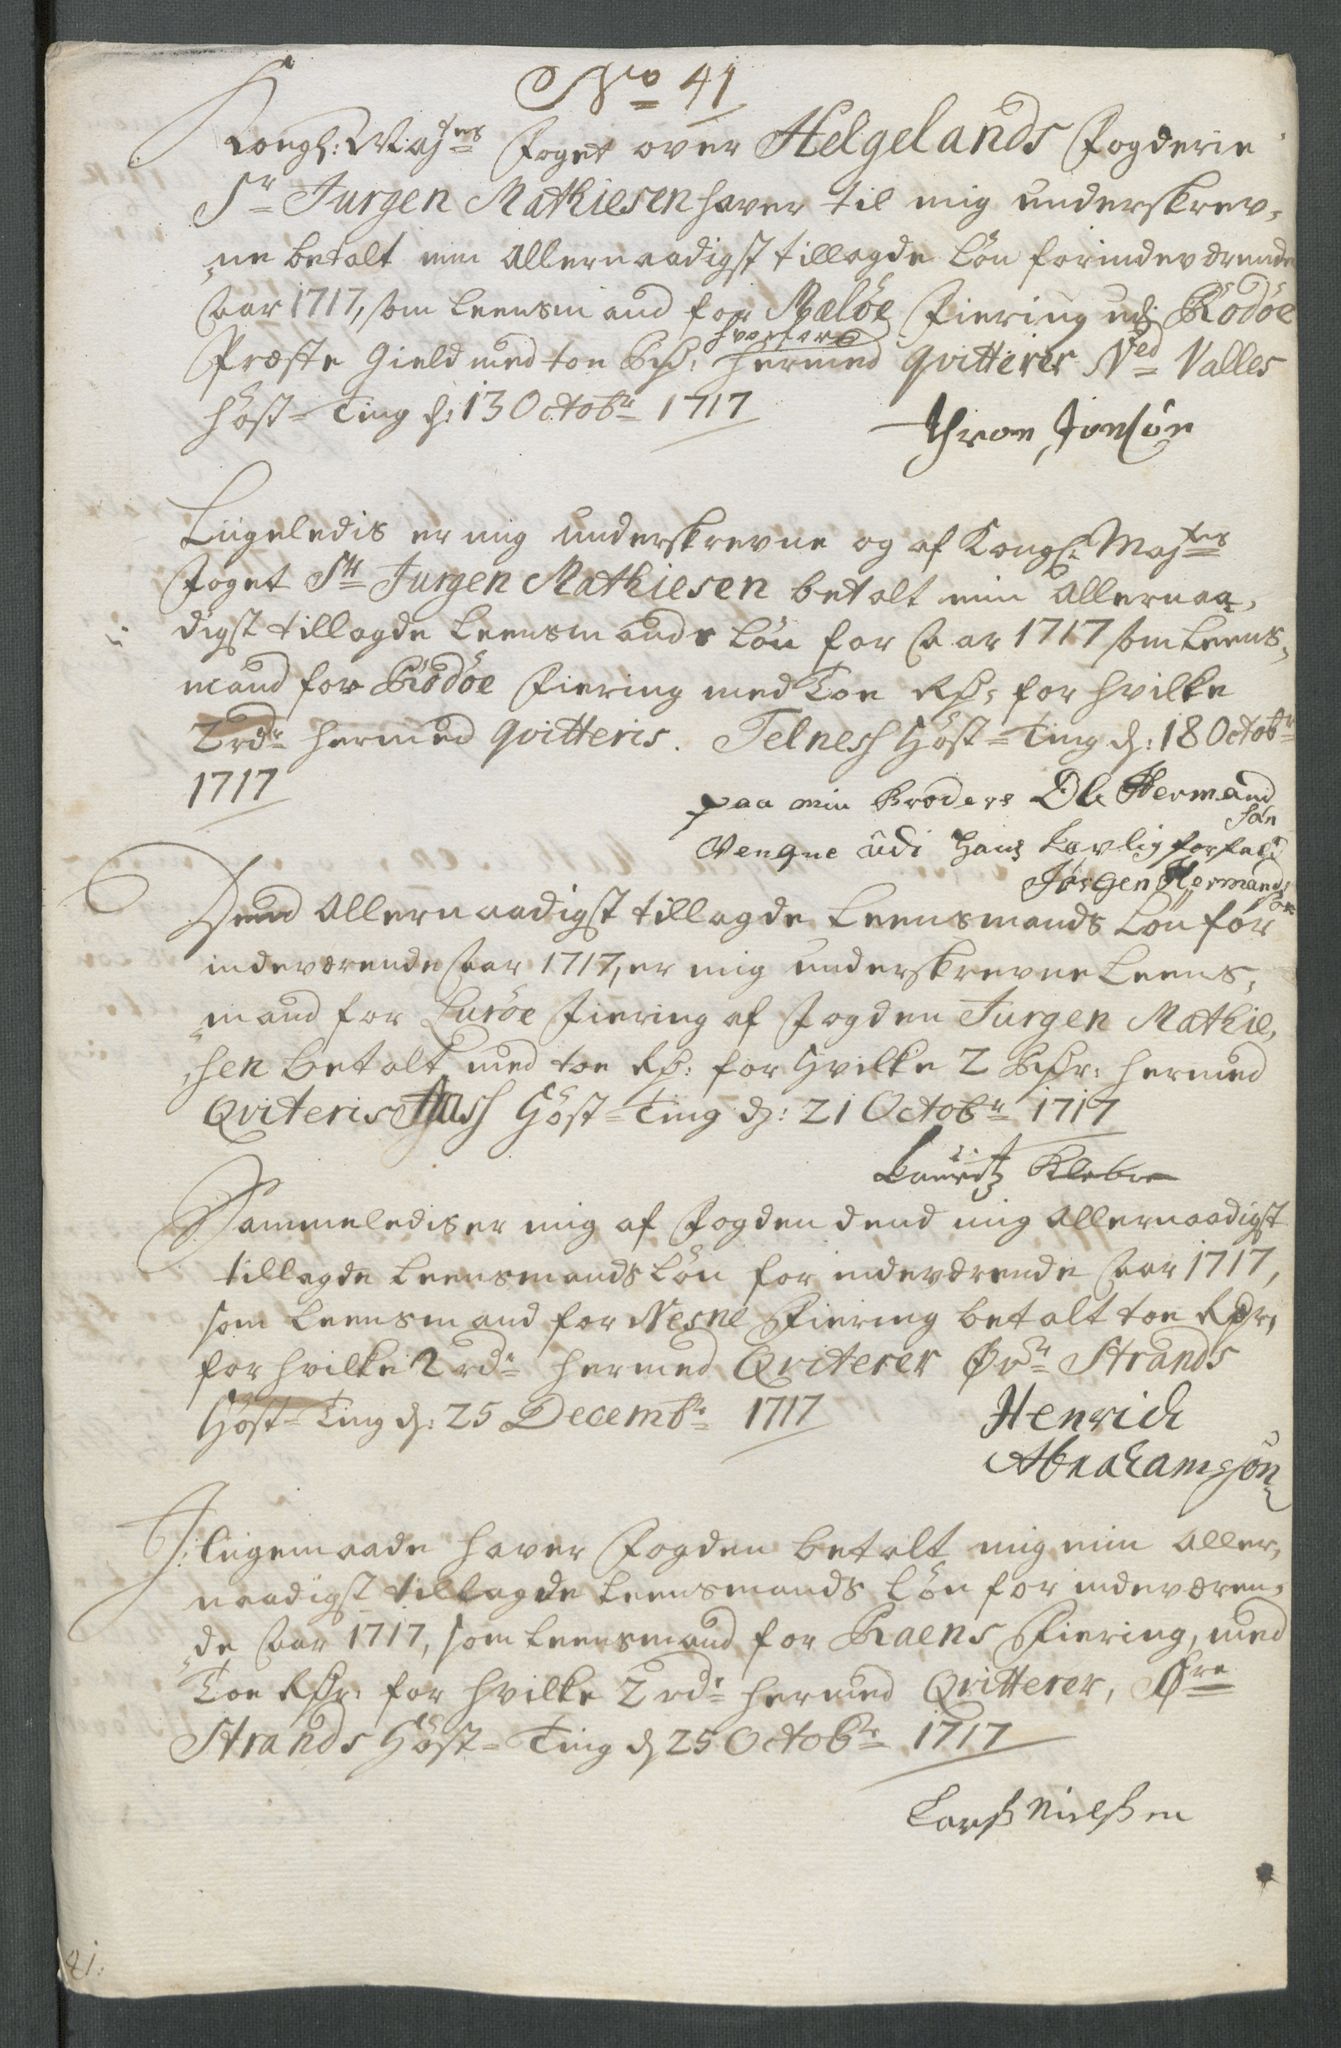 No 41
Kongl: Maj:tes Foget over Helgelands Fogderie
Sr Jurgen Mathiesen haver til mig underskrev,
ne betalt min Allernaadigst tillagde Løn for indeværende
Aar 1717, som Leensmand for Meløe Fiering udi Rödöe
Præste Gield med toe Rdr: hvorfore
hermed qvitterer Ned Valles
Höst-Ting d: 13 Octobr 1717
Thron Jonsön
Liigeledis er mig underskrevne og af Kongl: Maj:tes
Foget Sr Jurgen Mathiesen betalt min Allernaa,
digst tillagde Leensmands Løn for Aar 1717 som Leens,
mand for Rödöe Fiering med Toe Rdr, for hvilke
2 rdr hermed qvitteris. Telnesh Höst-Ting d: 18 Octobr
1717
paa min Broders Ole Hermand
sön
Wengne udi hans Lovlig forfald
Jørgen Hermands
søn
Dend Allernaadigst tillagde Leensmands Løn for
indeværende Aar 1717, er mig underskrevne Leens,
mand for Luröe Fiering af Fogden Jurgen Mathie,
sen betalt med toe Rdr: for hvilke 2 Rdr: hermed
Qviteris Höst-Ting d: 21 Octobr 1717
Lauritz Kleboe
Sammeledis er mig af Fogden dend mig Allernaadigst
tillagde Leensmands Løn for indeværende Aar 1717,
som Leensmand for Nesne Fiering betalt toe Rdr,
for hvilke 2 rdr hermed Qviterer Øvr Strands
Höst-Ting d: 25 Decembr 1717
Henrich
Abrahamsön
J: liigemaade haver Fogden betalt mig min Aller,
naadigst tillagde Leensmands Løn for indeværen,
de Aar 1717, som Leensmand for Raens Fiering, med
Toe Rdr: for hvilke 2 rdr hermed Qvitterer, Øvre
Strands Höst-Ting d 25 Octobr 1717
Larss Nielssen
41: